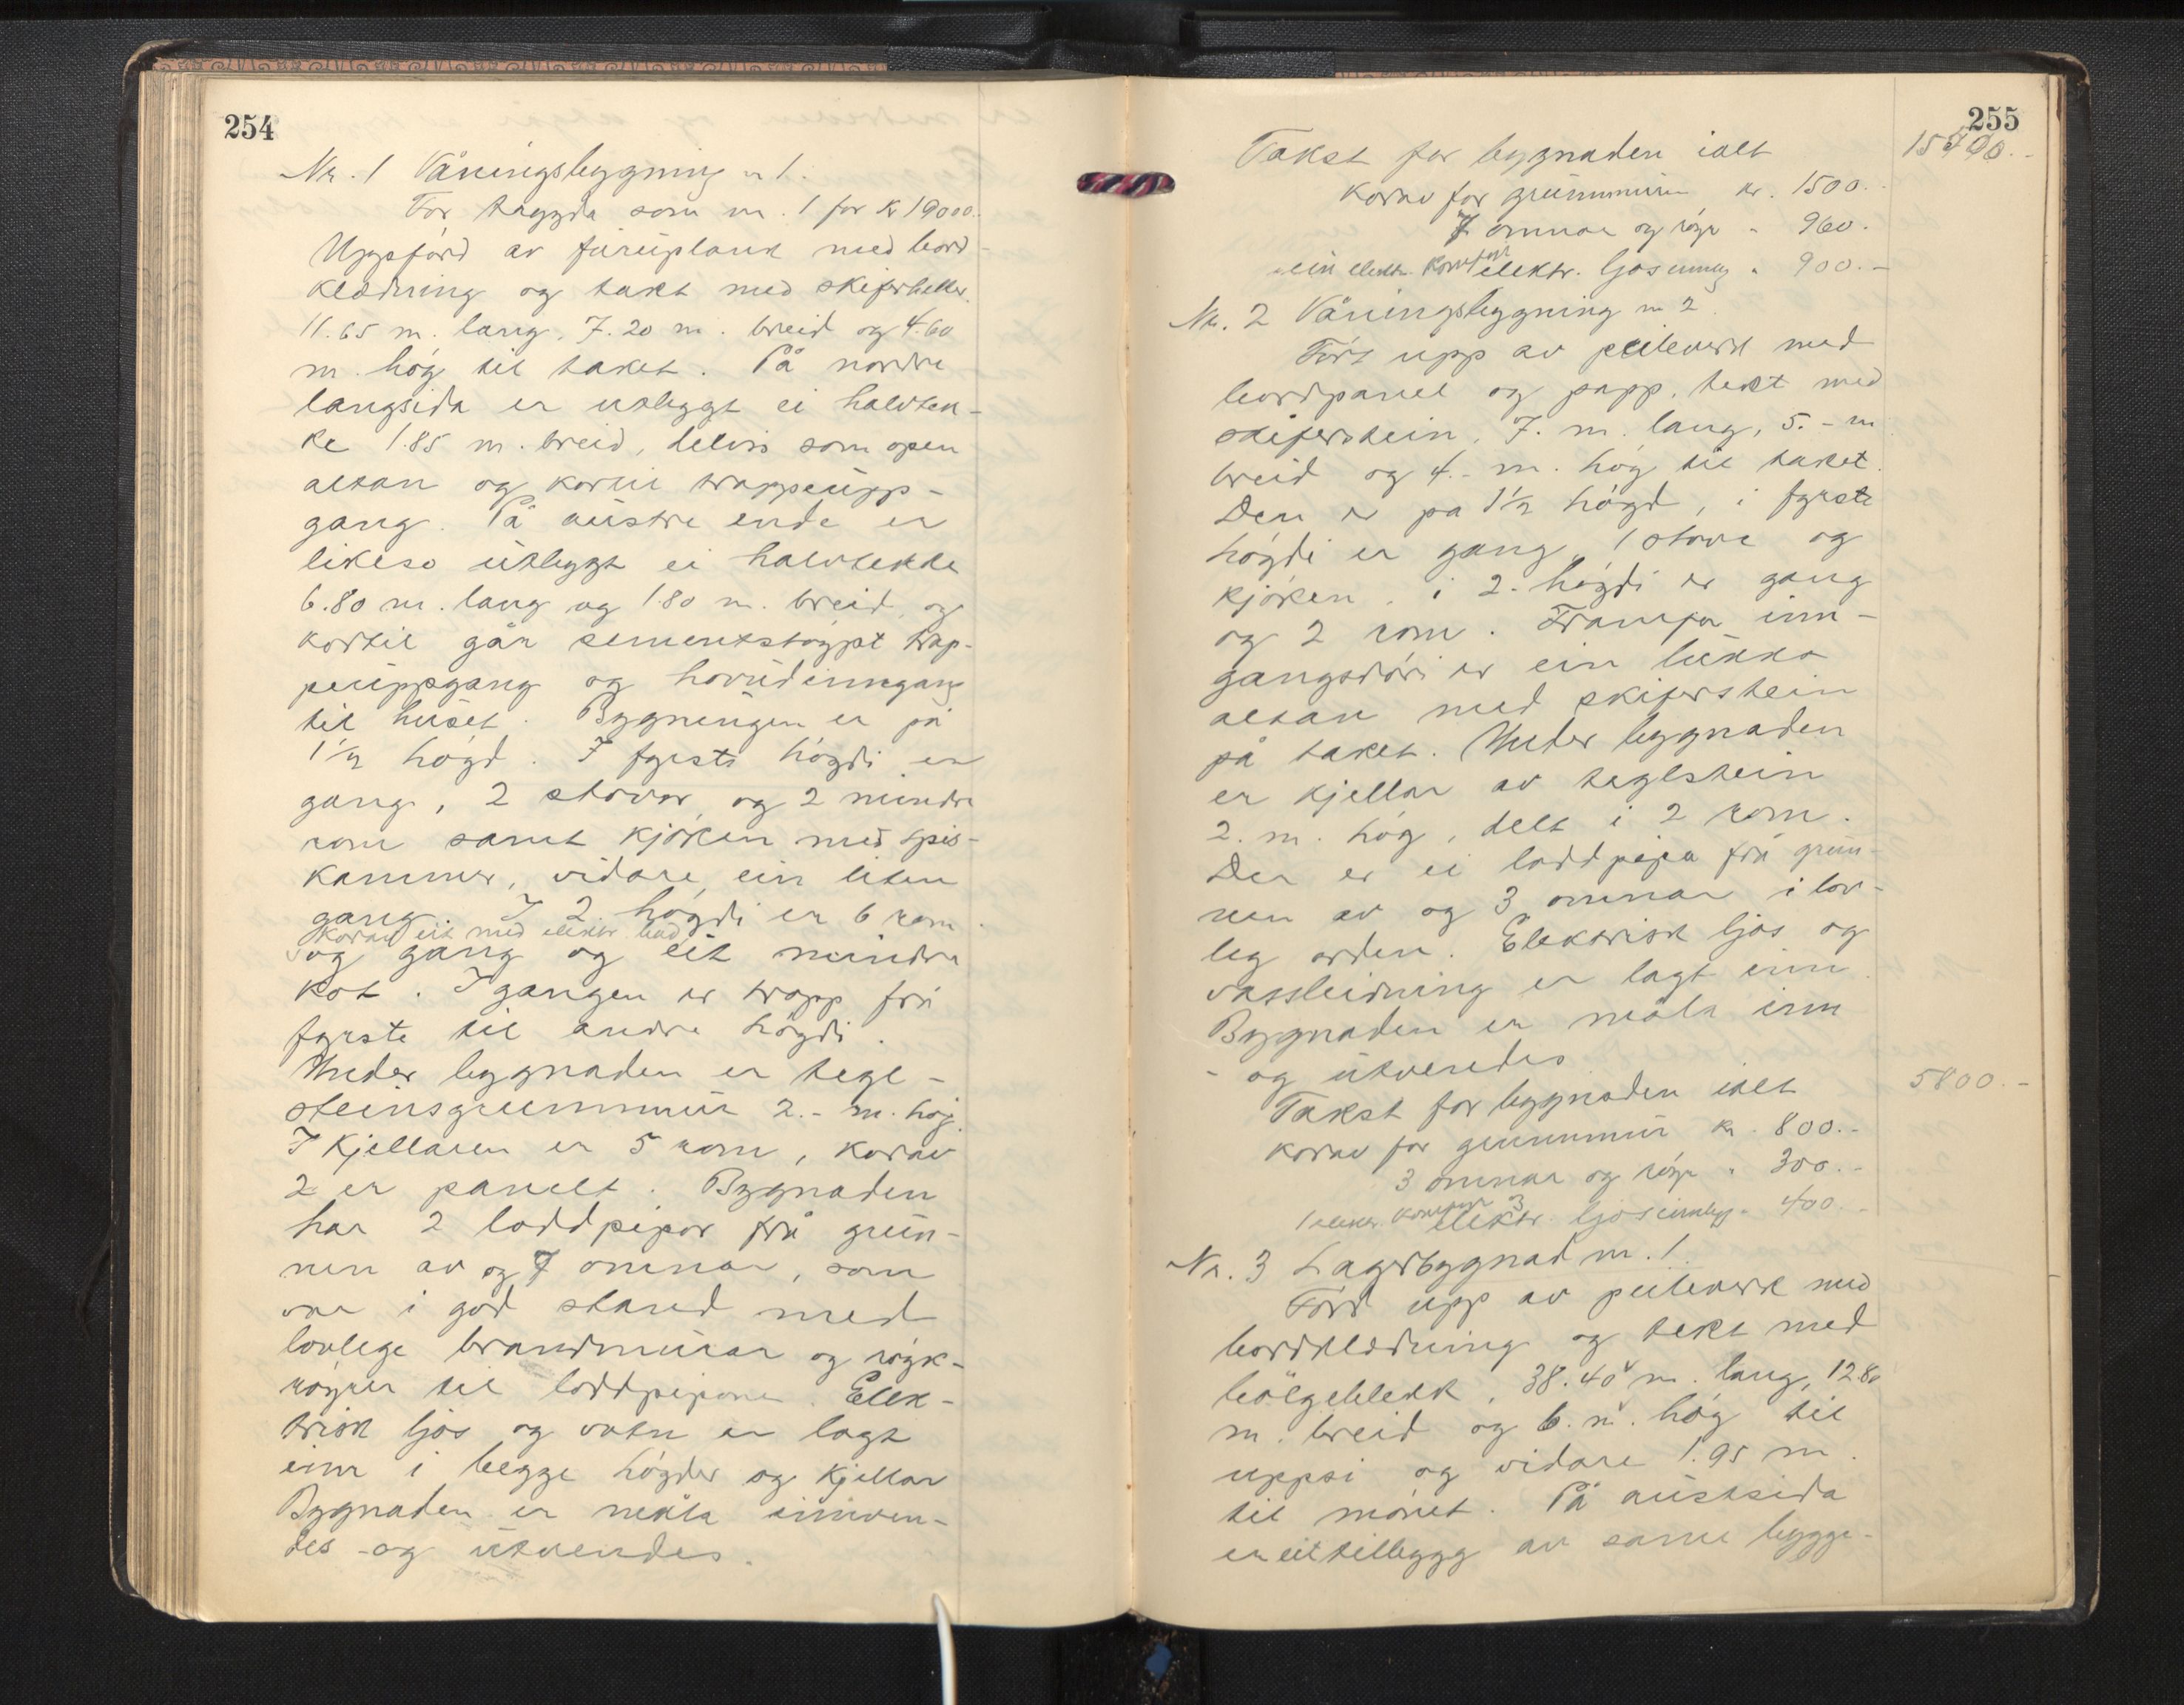 254
Nr. 1 Våningsbygning nr 1.
Før trygda som nr. 1 for kr 19000.
Uppförd av furuplank med bord-
klædning og tækt med skiferheller.
11.65 m. lang, 7.20 m. breid og 4.60
m. høg til taket. På nordre
langsida er utbygt ei halvtek-
ke 1.85 m. breid, delvis som open
altan og kortil trappeupp-
gang. På austre ende er
likeso utbygt ei halvtekke
6.80 m. lang og 1.80 m. breid, og
kortil går sementstøypt trap-
peuppgang og hovudinngang
til huset. Bygningen er på
1½ högd. I fyrste högdi er
gang, 2 stovor og 2 mindre
rom samt kjöken med spis-
kammer, vidare ein liten
gang. I 2 högdi er 6 rom
korav eit med elektr. bad
og gang og eit mindre
kot. I gangen er trapp frå
fyrste til andre högdi.
Under bygnaden er tegl-
steinsgrunnmur 2.- m. høg.
I kjellaren er 5 rom, korav
2 er panelt. Bygnaden
har 2 loddpipor frå grun-
nen av og 7 omnar, som
var i god stand med
lovlege brandmurar og røyk-
røyrer til loddpipone. Elek-
trisk ljos og vatn er lagt
inn i begge högder og kjellar
Bygnaden er måla innven-
des - og utvendes.
255
Takst for bygnaden ialt
korav for grunnmuren kr. 1500.-
7 omnar og röyr " 960.-
ein elektr. komfyr elektr. ljosinnlegg " 900.-
Nr. 2 Våningsbygning nr 2.
Fört upp av peileverk med
bordpanel og papp, tekt med
skiferstein, 7. m. lang, 5.- m
breid og 4.- m. høg til taket.
Den er på 1½ högd, i fyrste
högdi er gang, 1 stove og
kjöken, i 2. högdi er gang
og 2 rom. Framfor inn-
gangsdöri er ein lukka
altan med skiferstein
på taket. Under bygnaden
er kjellar av teglstein
2. m. høg, delt i 2 rom.
Der er ei loddpipa frå grun-
nen av og 3 omnar i lov-
leg orden. Elektrisk ljos og
vassleidning er lagt inn.
Bygnaden er måla inn
- og utvendes
Takst for bygnaden ialt 5800.-
korav for grunnmur kr. 800.-
3 omnar og röyr " 300.-
1 elektr. komfyr elektr. ljosinnlegg " 400.-
Nr. 3 Lagerbygnad nr. 1.
Förd upp av peileverk med
bordklædning og tekt med
bölgeblekk, 38.40 m. lang, 12.80
m. breid og 6. m. høg til
uppsi og vidare 1.95 m.
til mönet. På austsida
er eit tillbygg av same bygge-